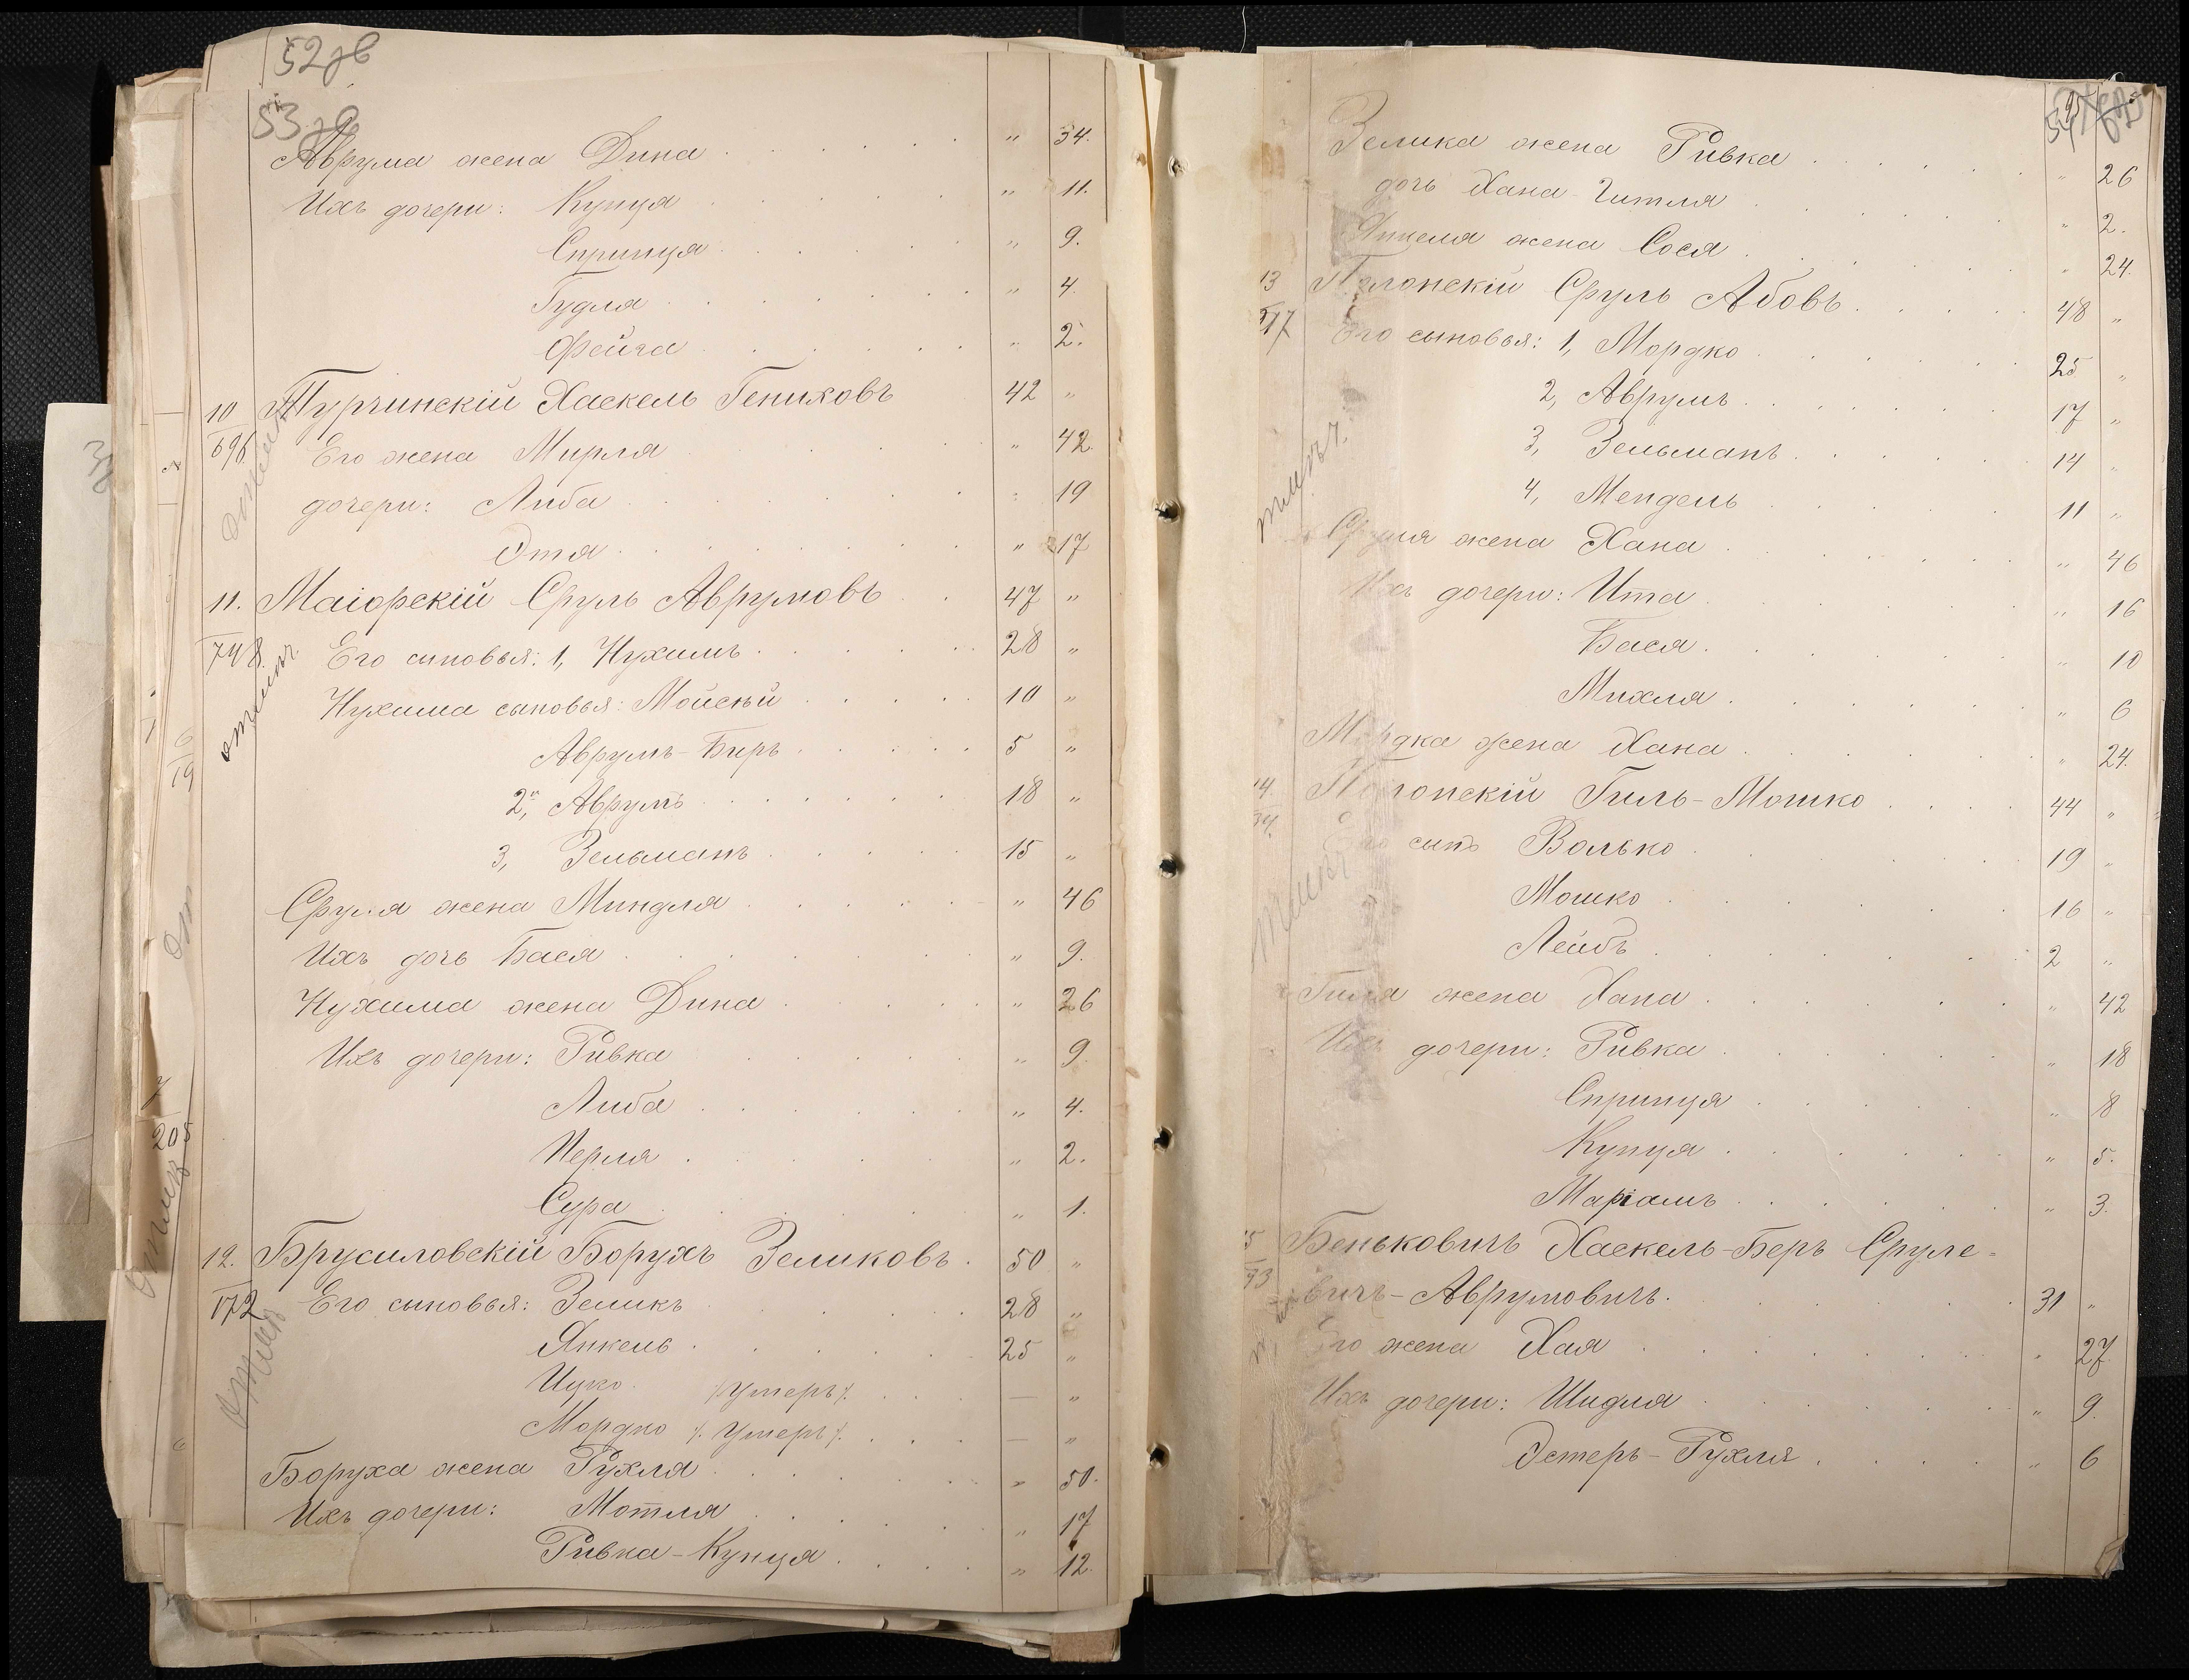 52 зв
53 зв
Аврума жена Дина . . . . . . " 34.
Ихъ дочери: Купця . . . . . . " 11.
Спринця . . . . . " 9.
Гудля . . . . . . . " 4.
Фейга . . . . . . " 2.
10 Турчинскій Хаскель Гениховъ 42 "
696 Его жена Мирля . . . " 42.
дочери: Либа . . . . . . . " 19
Этя . . . . . . . . " 17
11. Маіорскій Сруль Аврумовъ . . 47 "
748. Его сыновья: 1, Нухимъ . . . . . 28 "
отлич.
Нухима сыновья: Мойсѣй . . . . . 10 "
Аврумъ-Биръ . . . . . 5 "
2, Аврумъ . . . . . . . 18 "
3, Зельманъ . . . . . 15 "
Сруля жена Миндля . . . . . " 46
Ихъ дочь Бася . . . . . . . " 9.
Нухима жена Дина . . . . . " 26
Ихъ дочери: Ривка . . . . " 9.
Либа . . . . . . " 4.
Перля . . . . . " 2.
Сура . . . . . . " 1.
12. Брусиловскій Борухъ Зеликовъ . 50 "
172 Его сыновья: Зеликъ . . . . . 28 "
Янкель . . . . . . 25 "
Ицко . /умеръ/. . . . — "
Мордко /. умеръ/. . . . — "
Боруха жена Рухля . . . . . . " 50.
Ихъ дочери: Мотля . . . . . . " 17
Ривка-Купця . . . . " 12.
205
Зелика жена Ривка . . . . . " 26
дочь Хана-Гитля . . . . . . " 2.
Янкеля жена Сося . . . . . . " 24.
13 Полонскій Сруль Абовъ . . . . . 48 "
517 Его сыновья: 1, Мордко . . . . . . 25 "
2, Аврумъ . . . . . . . 17 "
3, Зельманъ . . . . . . 14 "
4, Мендель . . . . . . 11 "
Сруля жена Хана . . . . . . " 46
Ихъ дочери: Ита . . . . . . . " 16
Бася . . . . . . . " 10
Михля . . . . . . . " 6
Мордка жена Хана . . . . . . " 24.
14. Полонскій Гиль-Мошко . . . . 44 "
Его сынъ Волько . . . . . . . 19 "
Мошко . . . . . . . 16 "
Лейбъ . . . . . . . 2 "
Гиля жена Хана . . . . . . . " 42
Ихъ дочери: Ривка . . . . . . " 18
Спринця . . . . . " 8
Купця . . . . . . " 5.
Маріамъ . . . . . " 3.
15 Беньковичъ Хаскель-Беръ Сруле-
вичъ-Аврумовичъ. . . . . . . 31 "
Его жена Хая . . . . . . . " 27.
Ихъ дочери: Шидля . . . . . . " 9.
Эстеръ-Рухля . . . . " 6